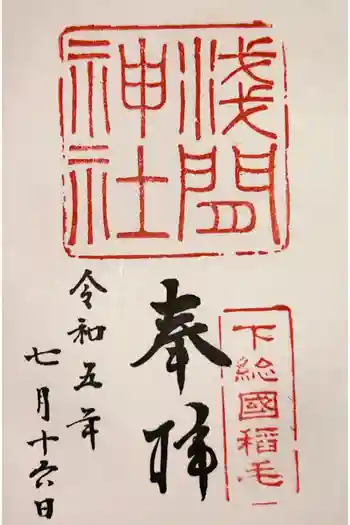 浅間
神社
下総國稲毛
奉拝
令和五年
七月十六日